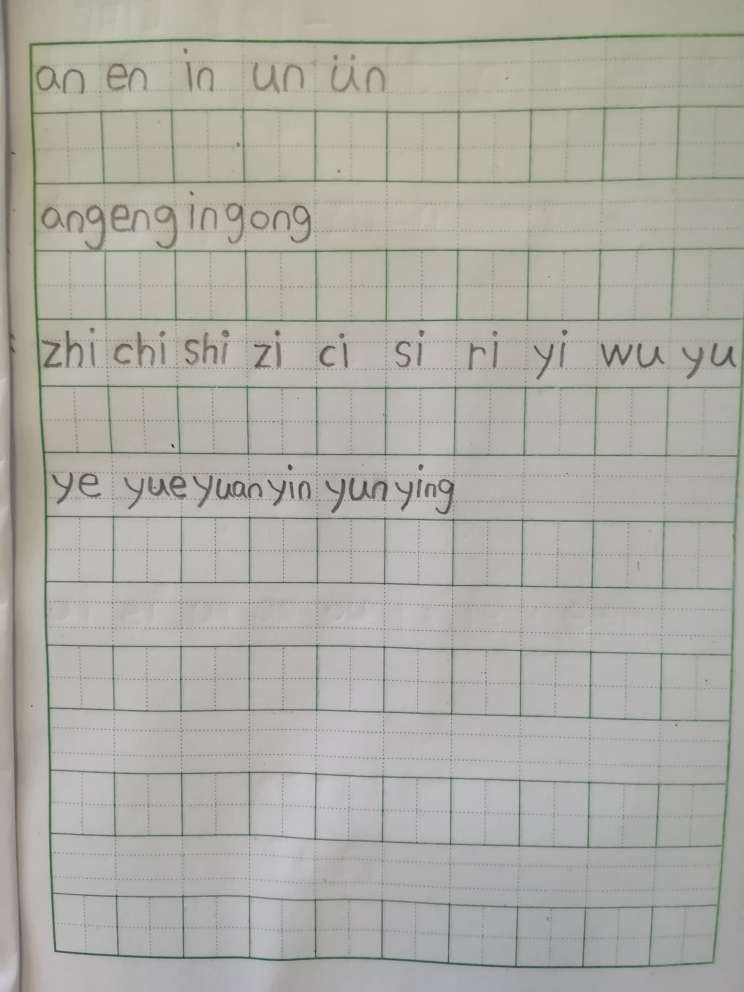 an en in un ün
angengingong
zhi chi shi zi ci si ri yi wu yu
ye yue yuan yin yun ying